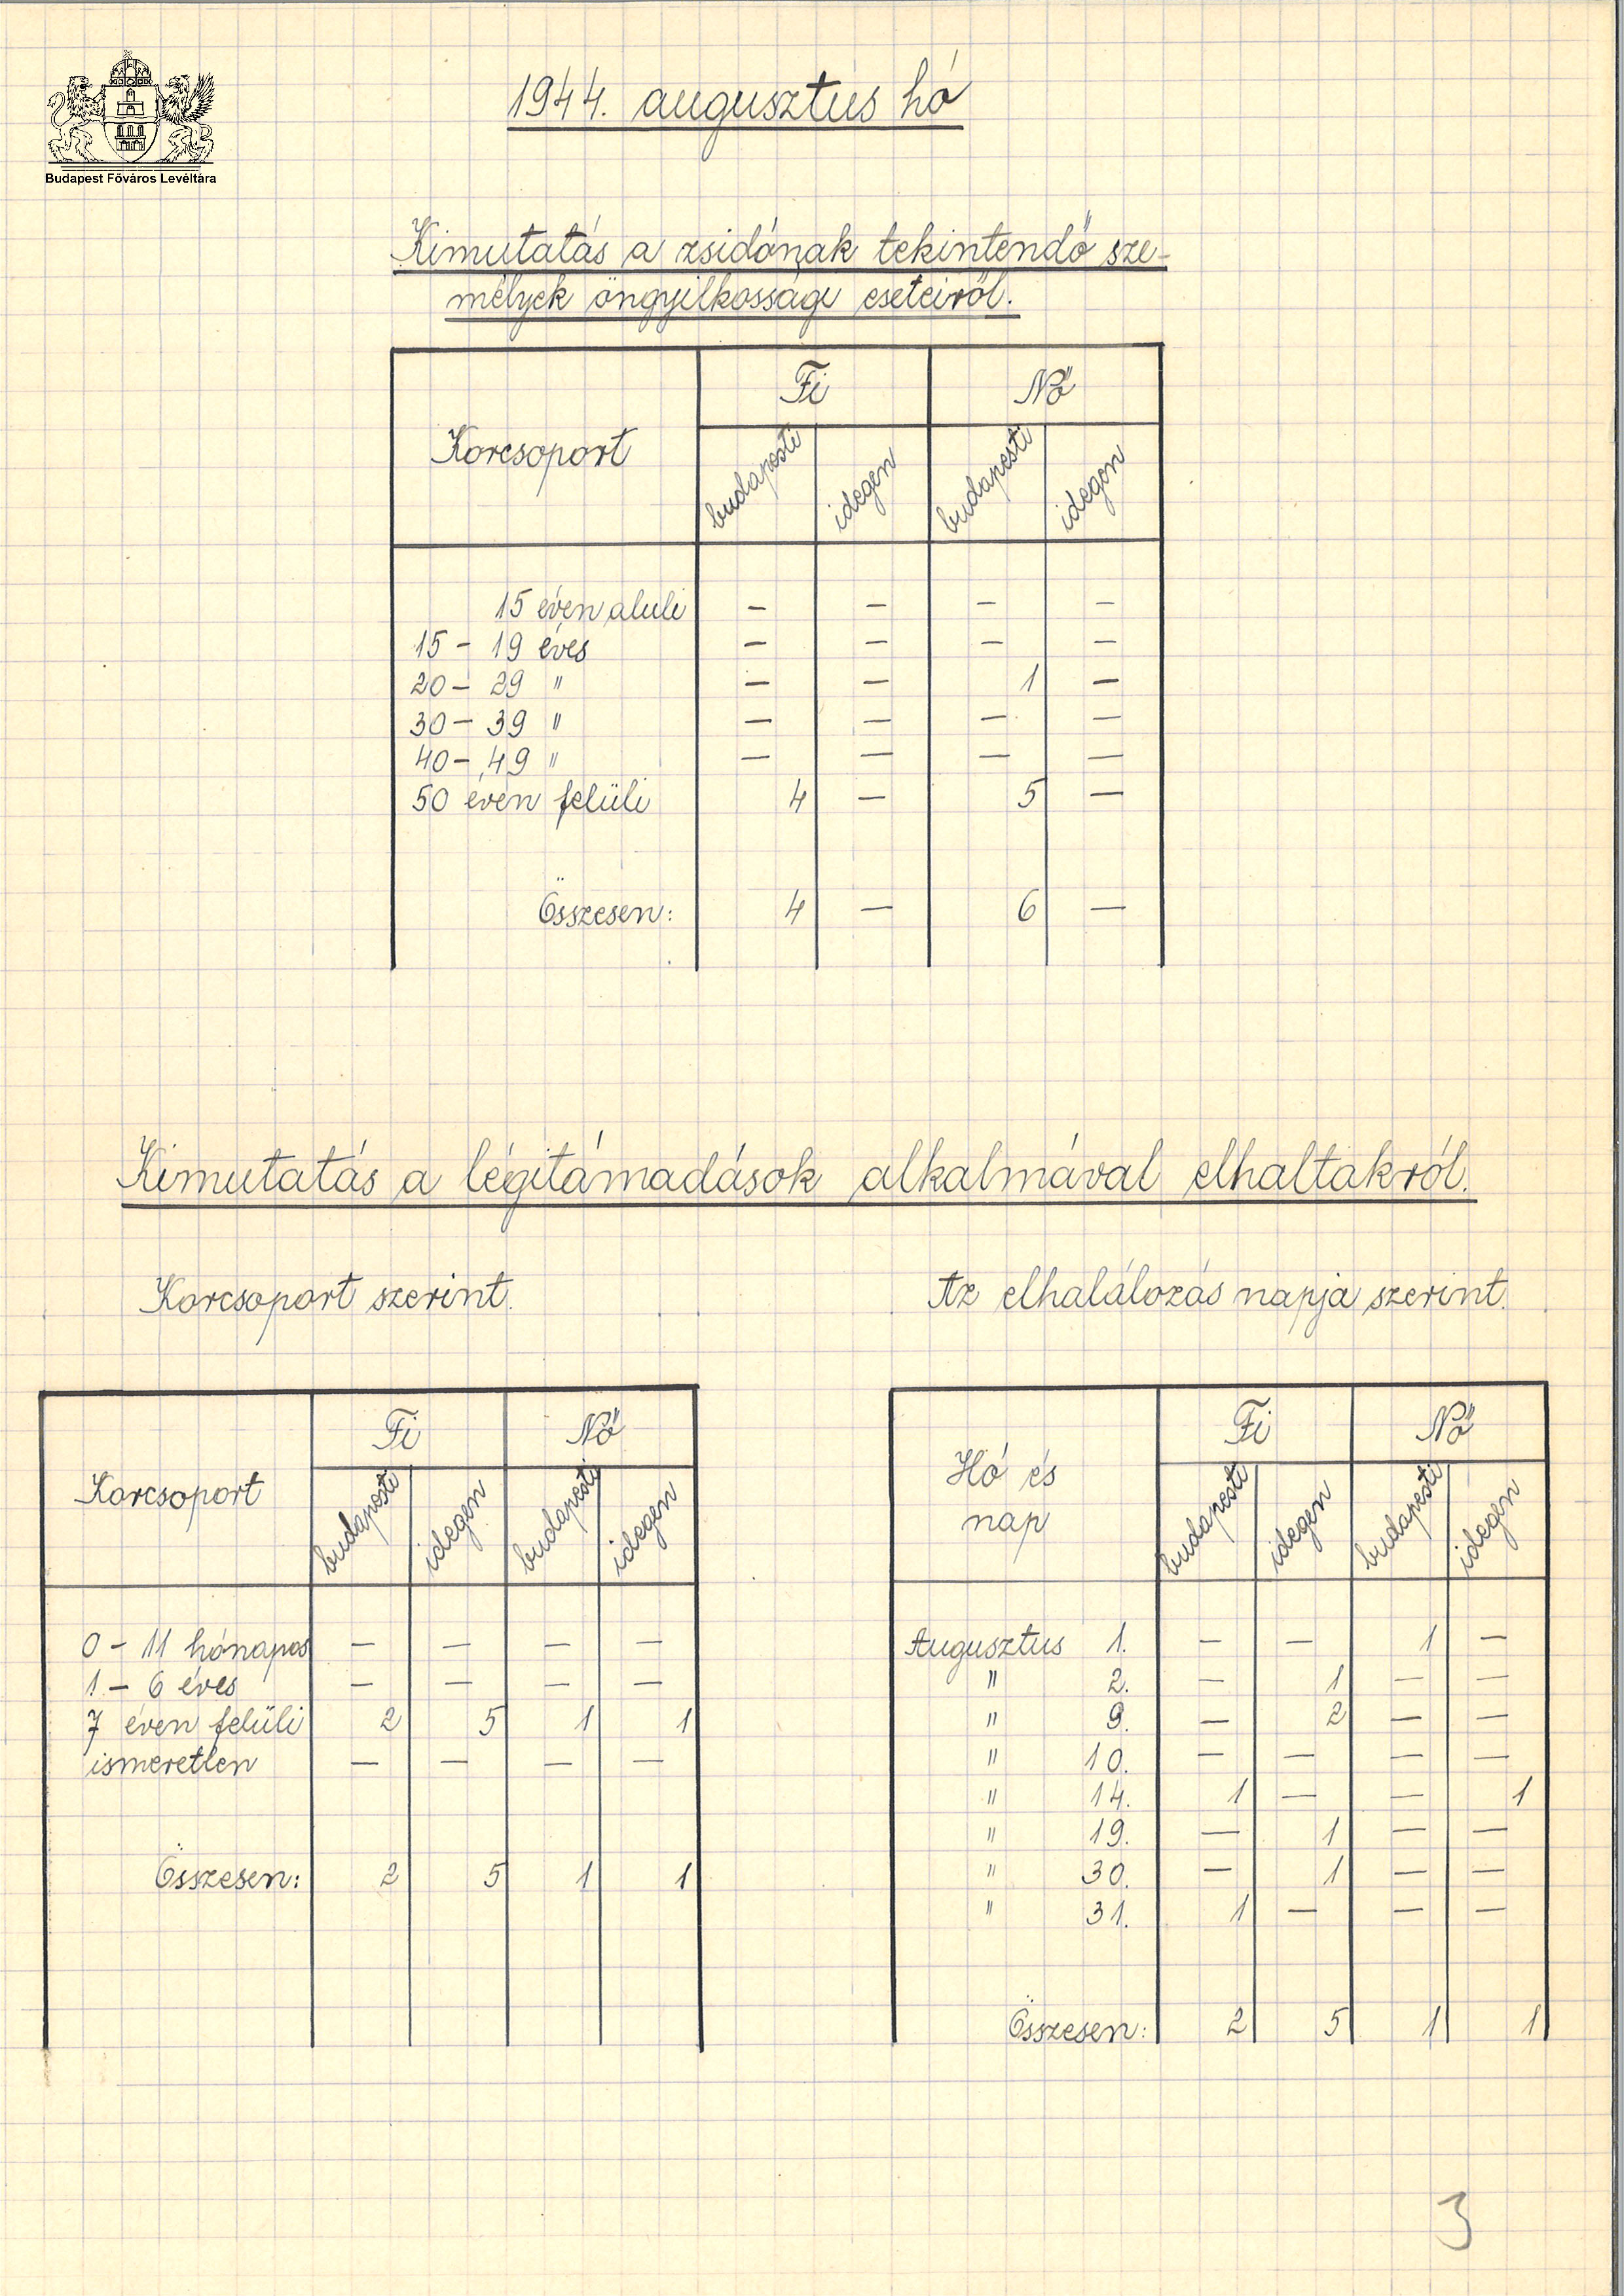 Budapest Főváros Levéltára
1944. augusztus hó
Kimutatás a zsidónak tekintendő sze-
mélyek öngyilkossági eseteiről.
Korcsoport Fi Nő
budapesti idegen budapesti idegen
15 éven aluli — — — —
15 – 19 éves — — — —
20 – 29 " — — 1 —
30 – 39 " — — — —
40 – 49 " — — — —
50 éven felüli 4 — 5 —
Összesen: 4 — 6 —
Kimutatás a légitámadások alkalmával elhaltakról.
Korcsoport szerint.
Korcsoport Fi Nő
budapesti idegen budapesti idegen
0 – 11 hónapos — — — —
1 – 6 éves — — — —
7 éven felüli 2 5 1 1
ismeretlen — — — —
Összesen: 2 5 1 1
Az elhalálozás napja szerint.
Hó és nap Fi Nő
budapesti idegen budapesti idegen
Augusztus 1. — — 1 —
" 2. — 1 — —
" 9. — 2 — —
" 10. — — — —
" 14. 1 — — 1
" 19. — 1 — —
" 30. — 1 — —
" 31. 1 — — —
Összesen: 2 5 1 1
3